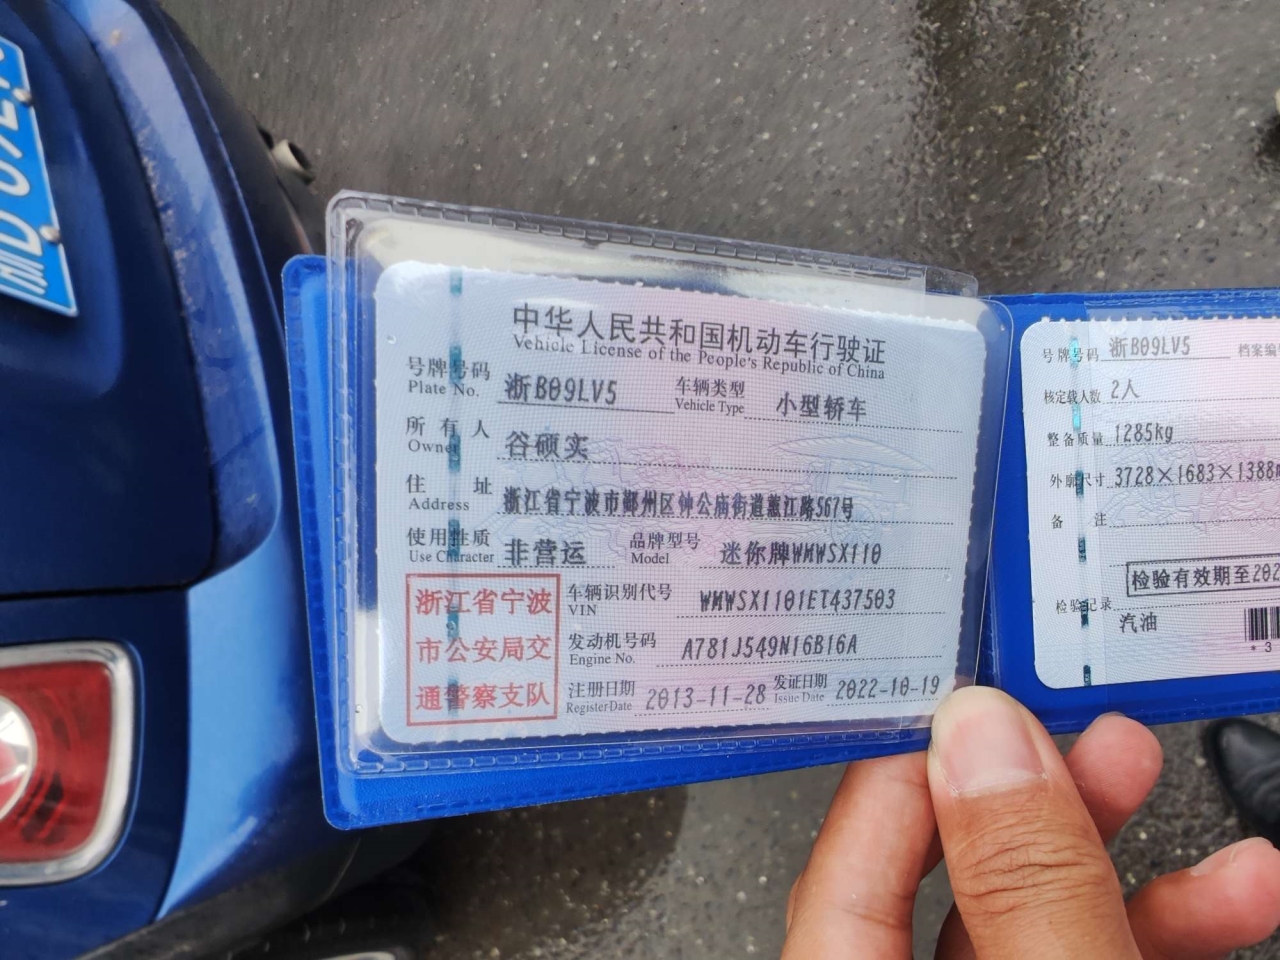 中华人民共和国机动车行驶证
Vehicle License of the People's Republic of China
号牌号码 浙B09LV5 车辆类型 小型轿车
Plate No. Vehicle Type
所有人 谷硕实
Owner
住址 浙江省宁波市鄞州区钟公庙街道蕙江路567号
Address
使用性质 非营运 品牌型号 迷你牌WMWSX110
Use Character Model
浙江省宁波
市公安局交
通警察支队
车辆识别代号 WMWSX1101ET437503
VIN
发动机号码 A781J549N16B16A
Engine No.
注册日期 2013-11-28 发证日期 2022-10-19
Register Date Issue Date
号牌号码 浙B09LV5 档案编
核定载人数 2人
整备质量 1285kg
外廓尺寸 3728×1683×1388
备注
检验有效期至202
检验记录
汽油
* 3